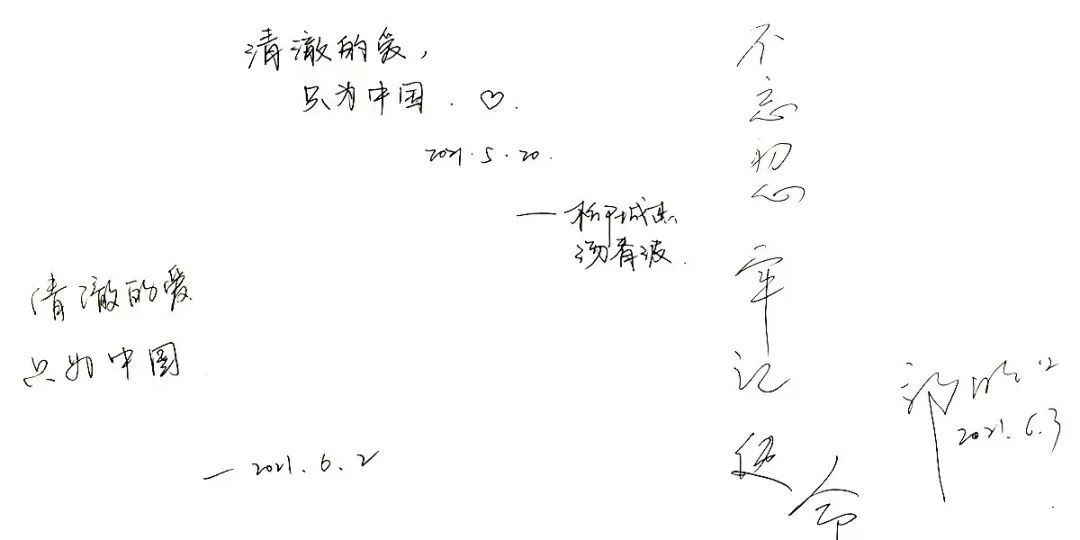 清澈的爱，
只为中国．♡．
2021.5.20.
清澈的爱
只为中国
—2021.6.2
不忘初心
牢记使命
2021.6.3